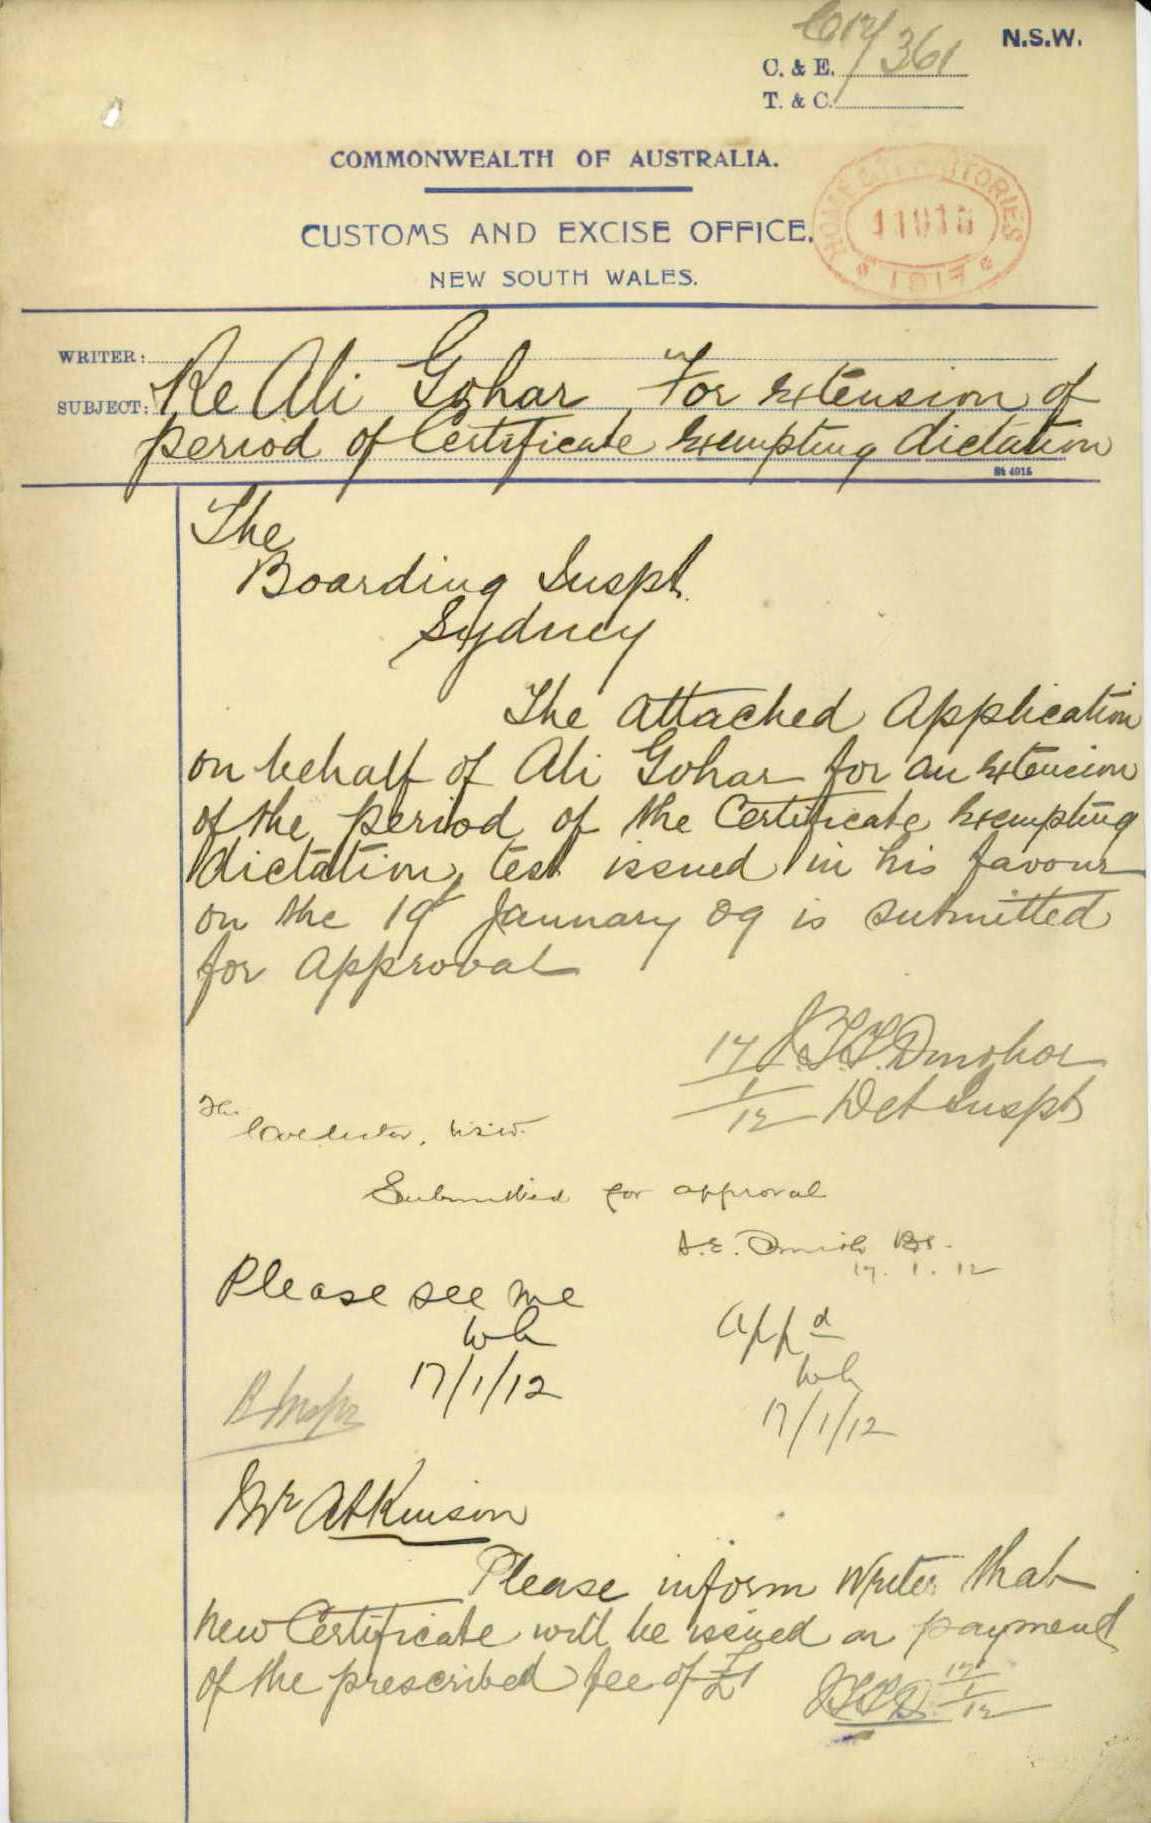 C12/361
N.S.W.
C. & E.
T. & C.
COMMONWEALTH OF AUSTRALIA.
CUSTOMS AND EXCISE OFFICE,
NEW SOUTH WALES.
HOME & TERRITORIES
11915
1917
WRITER:
SUBJECT: Re Ali Gohar For extension of
period of Certificate exempting dictation
St 4015
The
Boarding Inspt.
Sydney
The attached application
on behalf of Ali Gohar for an extension
of the period of the Certificate exempting
dictation test issued in his favour
on the 19th January 09 is submitted
for approval
17 J.T.T. Donohoe
1
12 Det Inspt
The
Collector, N.S.W.
Submitted for approval
17.1.12
Please see me
17/1/12
Appd
17/1/12
B Inspr
Mr Atkinson
Please inform writer that
new Certificate will be issued on payment
of the prescribed fee of £1
J.T.T.D. 17
1
12